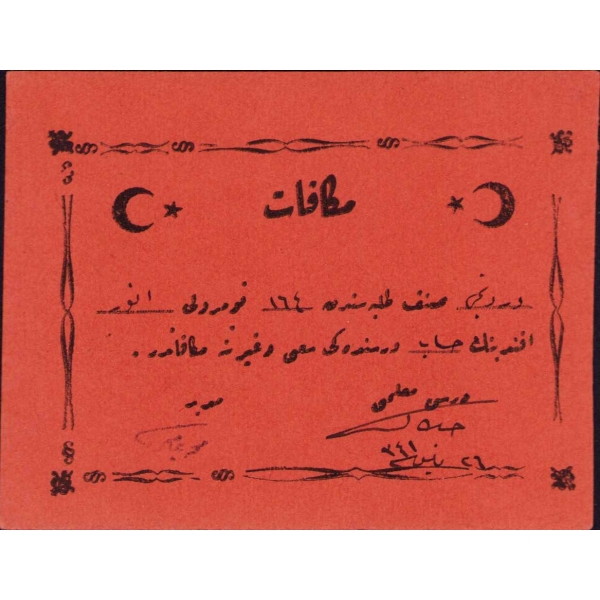 مكافات
دردنجی صنف طلبه سندن ١٦٤ نومرولی انور
افندینك حساب درسنده كی سعی و غیرته مكافاتدر.
درس معلمی مدیر
٣٤١